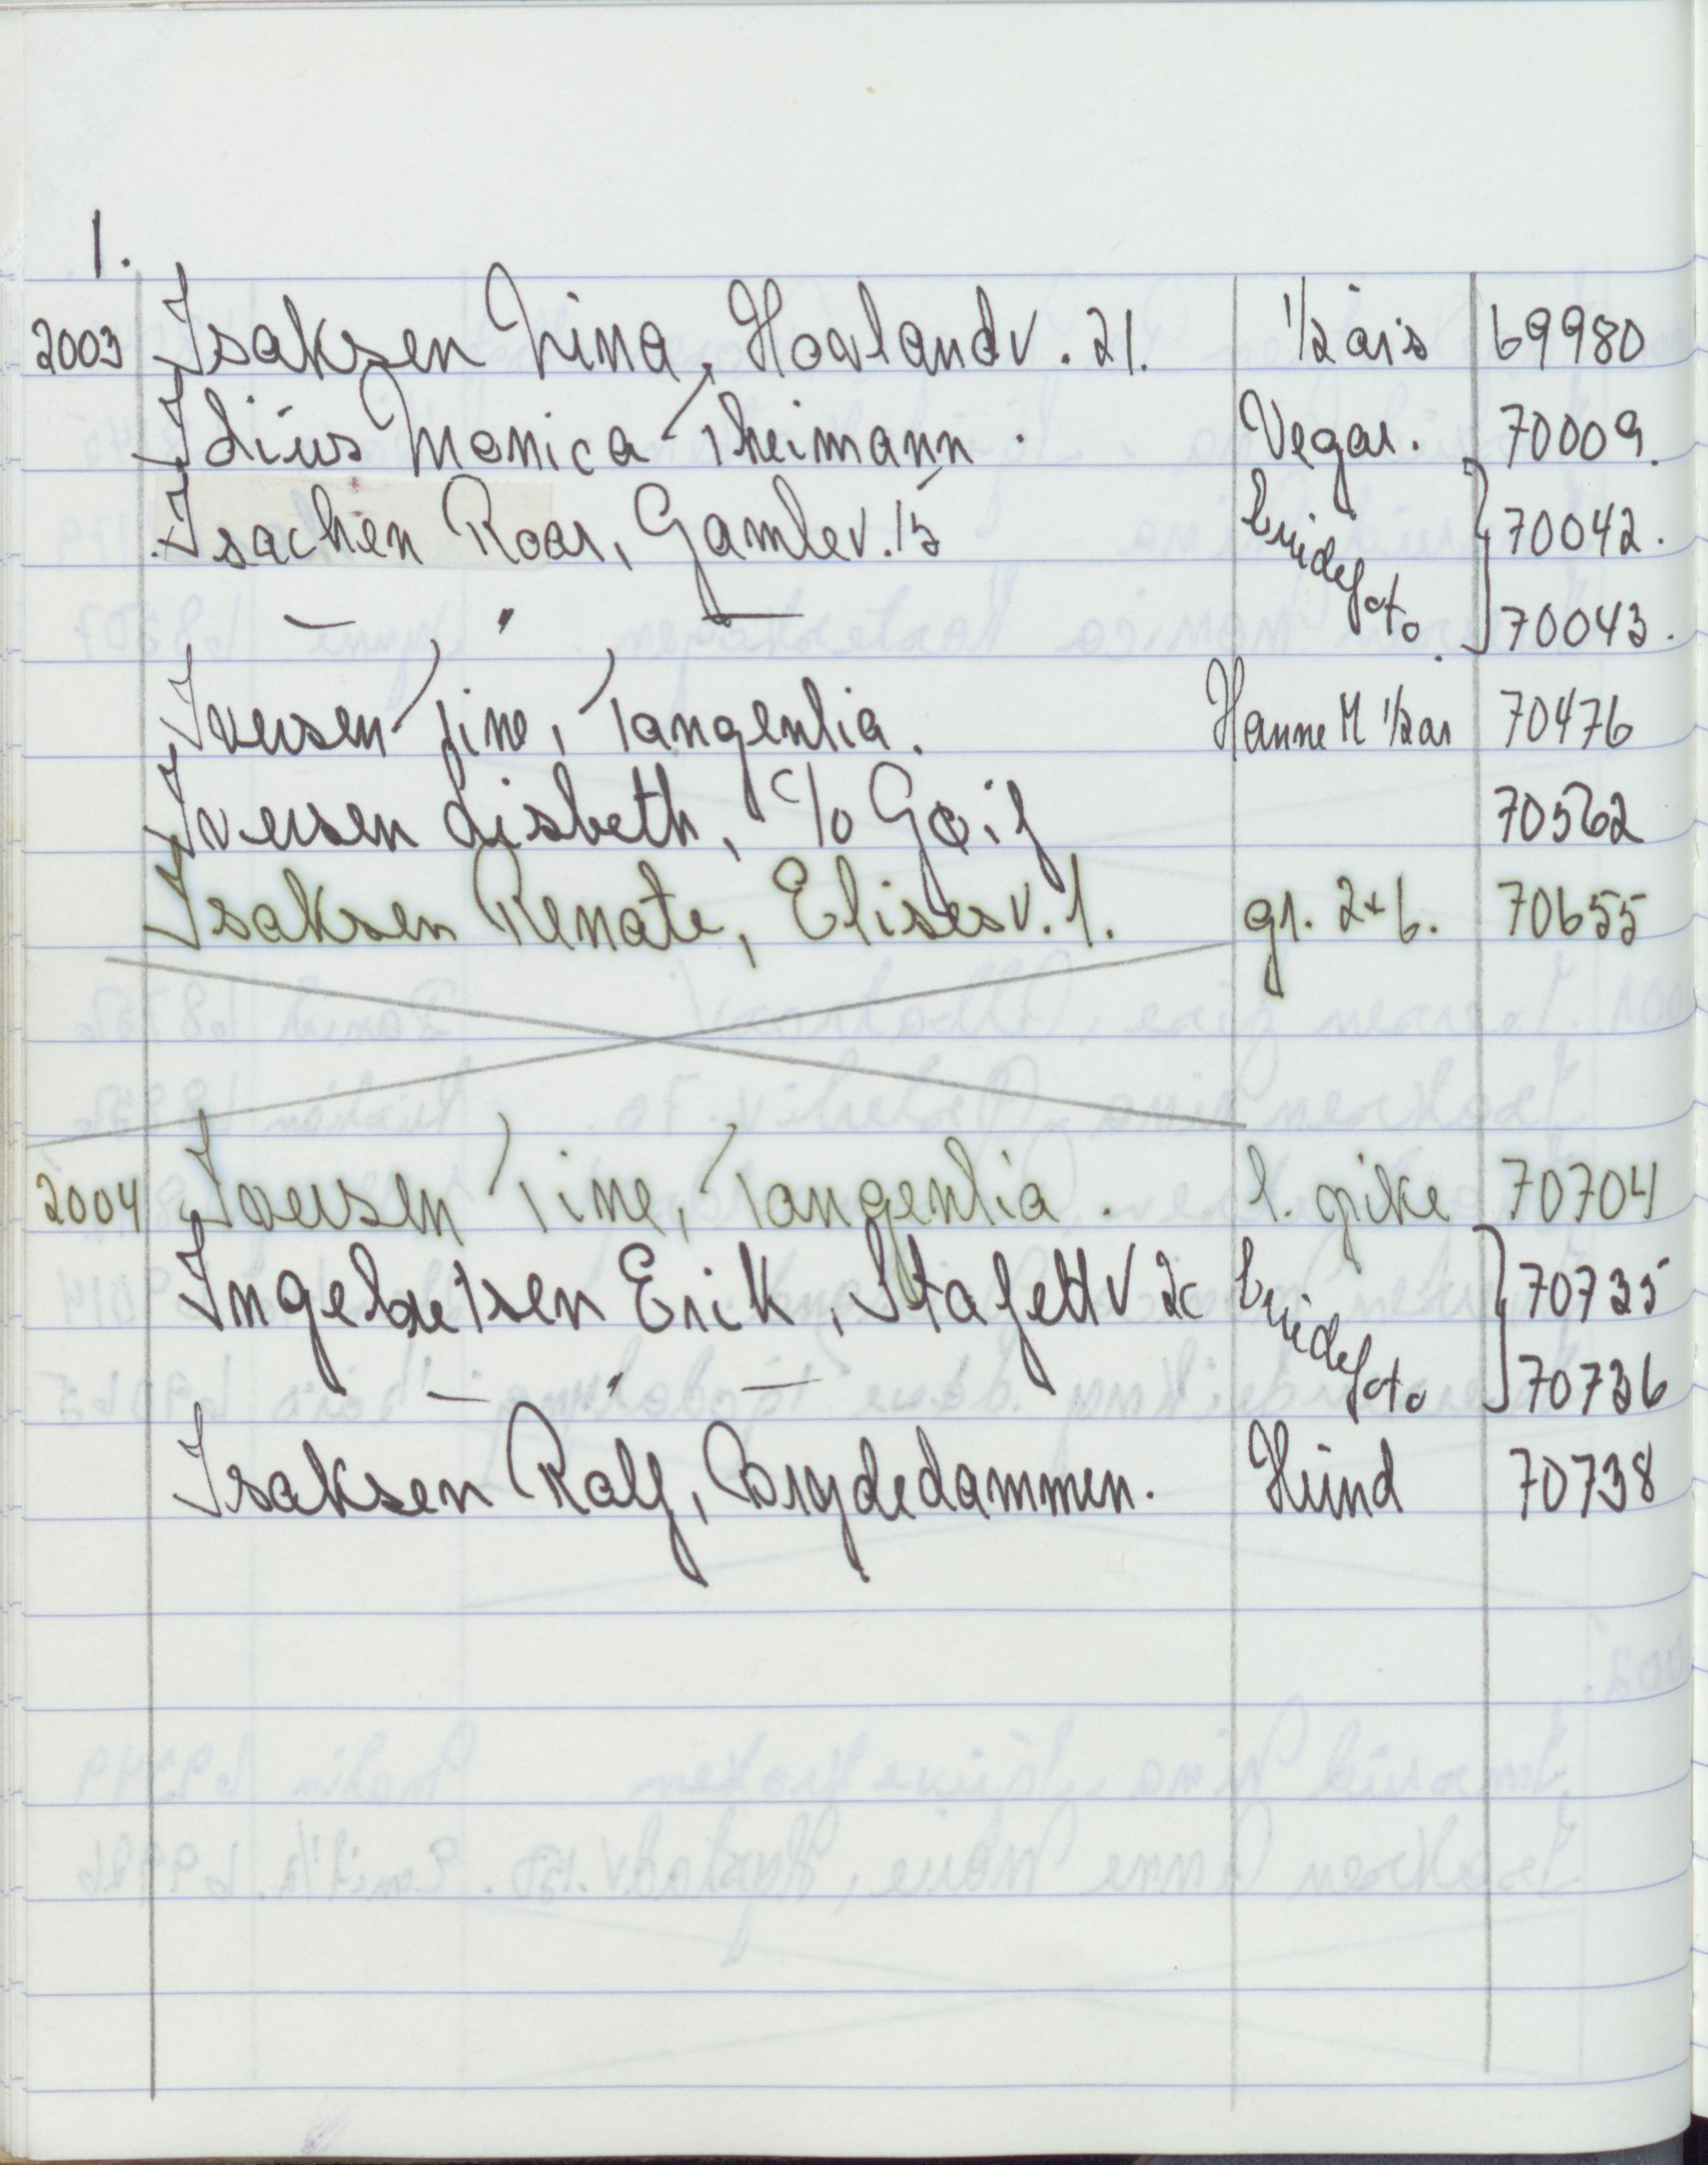 I.
2003 Isaksen Nina, Hovlandv. 21. 1/2 års 69980
Idius Monica Theimann. Vegar. 70009.
Isachen Roar, Gamlev. 15 brudefoto 70042.
— " — 70043.
Iversen Tine, Tangenlia. Hanne M 1/2 år 70476
Iversen Lisbeth, c/o Gaif 70562
Isaksen Renate, Elisesv. 1. gr. 2+6. 70655
2004 Iversen Tine, Tangenlia. l. pike 70704
Ingebretsen Erik, Stafettv 2c brudefoto 70735
— " — 70736
Isaksen Ralf, Brydedammen. Hund 70738